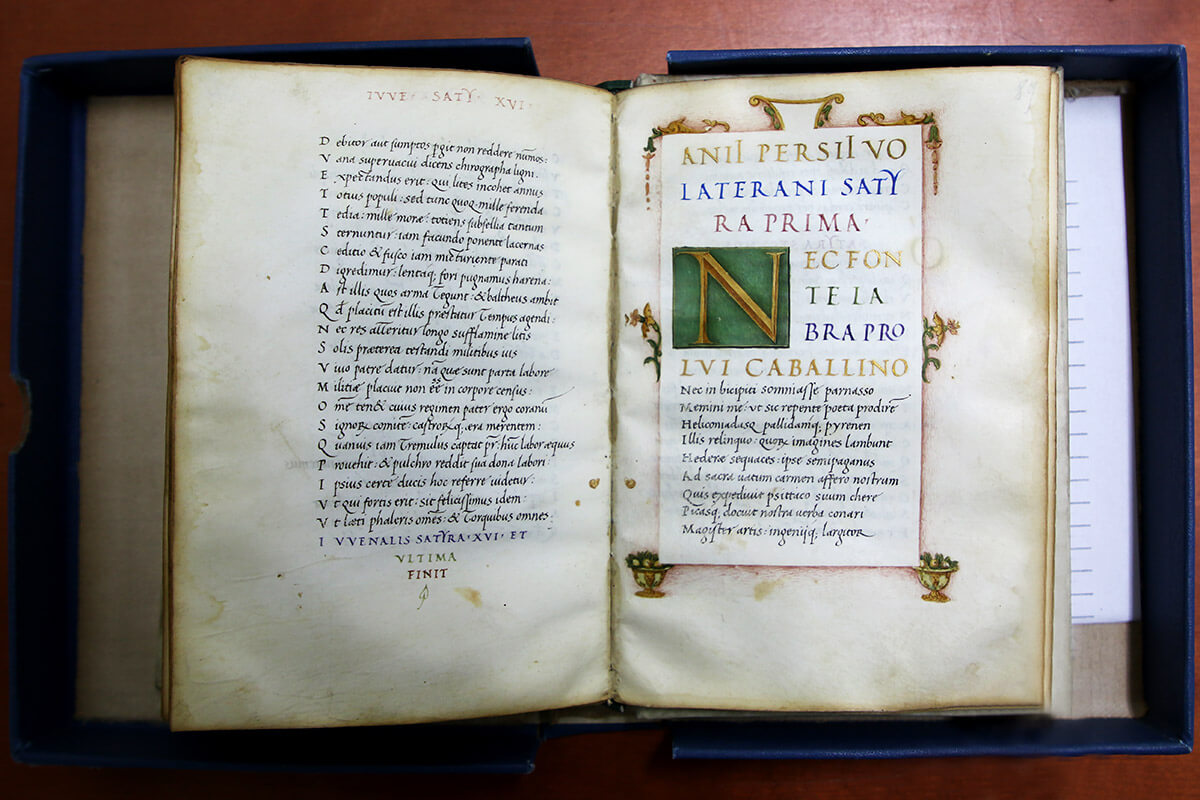 IUVE · SATY · XVI ·
D ebitor aut sumptos pgit non reddere nūmos:
V ana supervacui dicens chirographa ligni.
E xpectandus erit: qui lites incohet annus
T otius populi: sed tunc quoq; mille ferenda
T edia: mille moræ: totiens subsellia tantum
S ternuntur: iam facundo ponente lacernas
C editio & fusco iam micturiente parati
D igredimur: lentaq; fori pugnamus harena:
A st illis quos arma tegunt: & baltheus ambit
Q d̄ placitū est illis præstatur tempus agendi:
N ec res atteritur longo sufflamine litis
S olis præterea testandi militibus ius
V iuo patre datur: nā quæ sunt parta labore
M ilitiæ placuit non eē in corpore census:
O mē tenet cuius regimen pater ergo coranū
S ignoꝝ comitē: castroꝝq; æra merentem:
Q uanuis iam tremulus captat pr̄: hūc labor æquus
P rovehit: & pulchro reddit sua dona labori:
I psius certe ducis hoc referre videtur:
V t qui fortis erit: sit felicissimus idem:
V t læti phaleris omēs: & torquibus omnes:
I VVENALIS SATYRA · XVI · ET
VLTIMA
FINIT
ANII PERSII VO
LATERANI SATY
RA PRIMA ·
NEC FON
TE LA
BRA PRO
LVI CABALLINO
Nec in bicipiti somniasse parnasso
Memini me: ut sic repente poeta prodirē
Heliconiadasq; pallidamq; pyrenen
Illis relinquo: quoꝝ imagines lambunt
Hederæ sequaces: ipse semipaganus
Ad sacra uatum carmen affero nostrum
Quis expediuit psittaco suum chere
Picasq; docuit nostra verba conari
Magister artis: ingeniiq; largitor